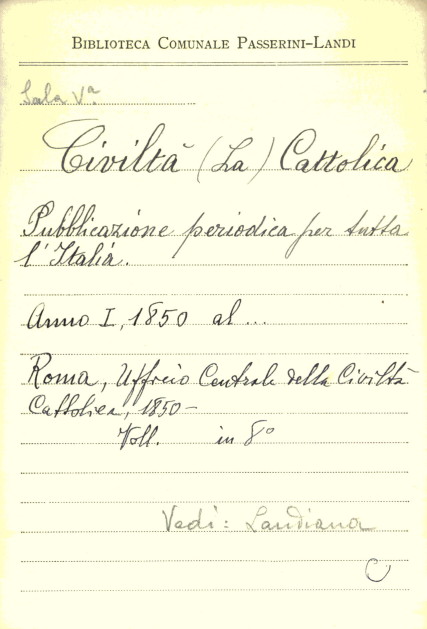 BIBLIOTECA COMUNALE PASSERINI-LANDI
Sala Vª
Civiltà (La) Cattolica
Pubblicazione periodica per tutta
l'Italia.
Anno I, 1850 al ...
Roma, Ufficio Centrale della Civiltà
Cattolica, 1850-
Voll. in 8º
Vedi: Landiana